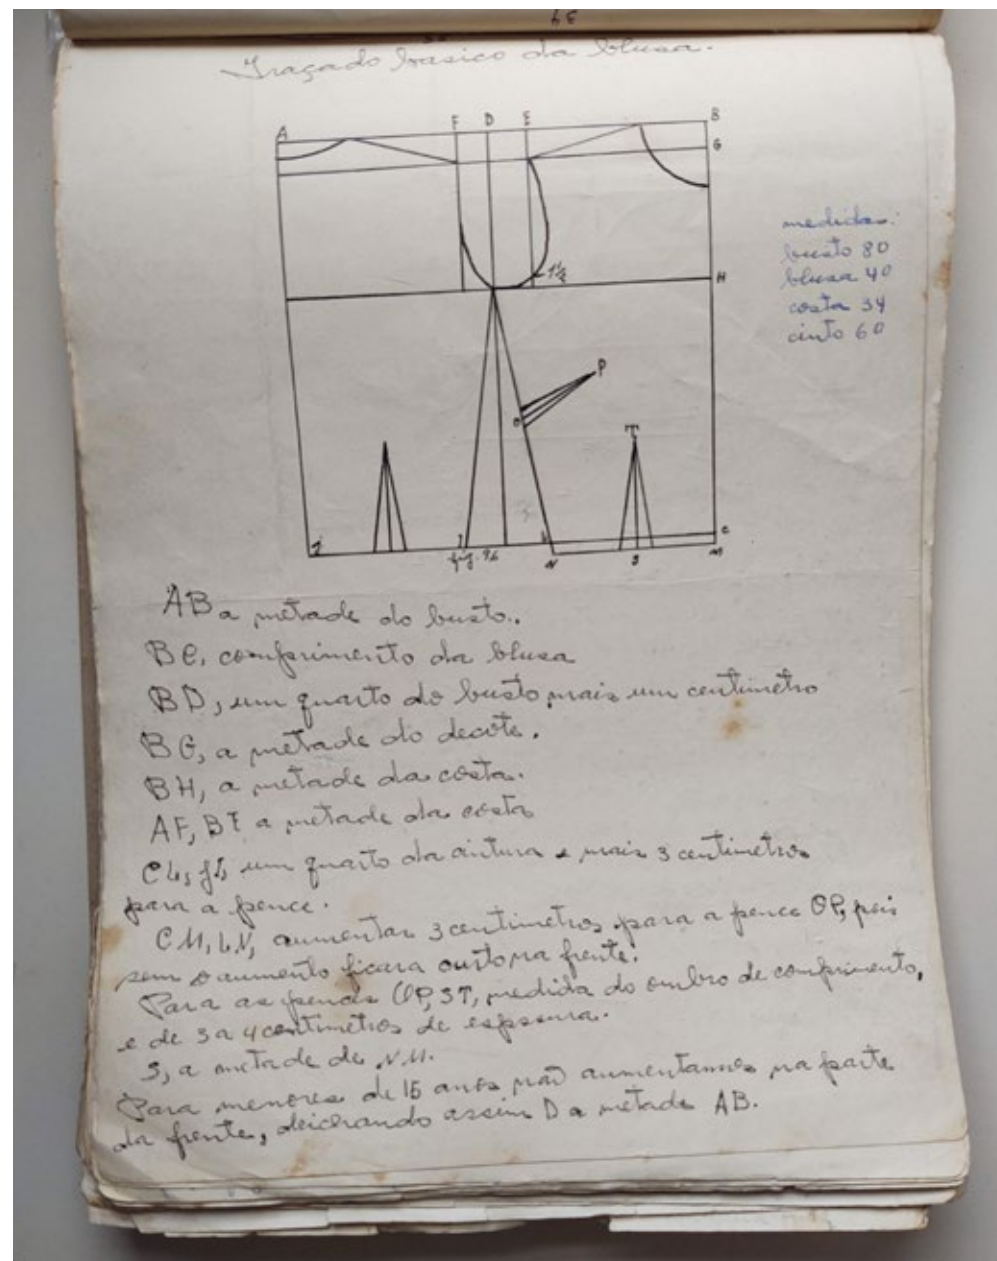 34
Traçado basico da blusa.
A F D E B
G
1 1/2
H
medidas:
busto 80
blusa 40
costa 34
cinto 60
P
O
T
J I fig. 96 L C
N S M
AB a metade do busto.
BC, comprimento da blusa
BD, um quarto do busto mais um centimetro
BG, a metade do decote.
BH, a metade da costa.
AF, BE a metade da costa
CL, JI, um quarto da cintura e mais 3 centimetros
para a pence.
CM, LN, aumentar 3 centimetros para a pence OP, pois
sem o aumento ficara curto na frente.
Para as pences OP, ST, medida do ombro de comprimento,
e de 3 a 4 centimetros de espssura.
S, a metade de NM.
Para menores de 15 anos não aumentamos na parte
da frente, deichando assim D a metade AB.